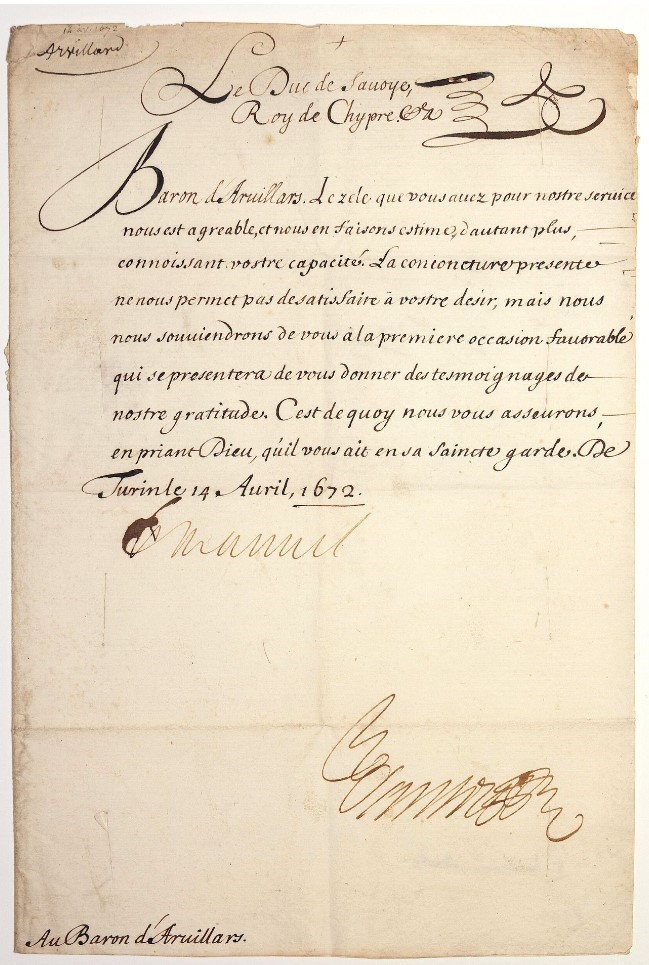 1672
Arvillard
+
Le Duc de Savoye,
Roy de Chypre. &ca
Baron d'Arvillars. Le zele que vous avez pour nostre service
nous est agreable, et nous en faisons estime, d'autant plus,
connoissant vostre capacité. La conioncture presente
ne nous permet pas de satisfaire à vostre desir, mais nous
nous souviendrons de vous à la premiere occasion favorable
qui se presentera de vous donner des tesmoignages de
nostre gratitude. C'est de quoy nous vous asseurons,
en priant Dieu, qu'il vous ait en sa saincte garde. De
Turin le 14 Avril, 1672.
Emanuel
Au Baron d'Arvillars.